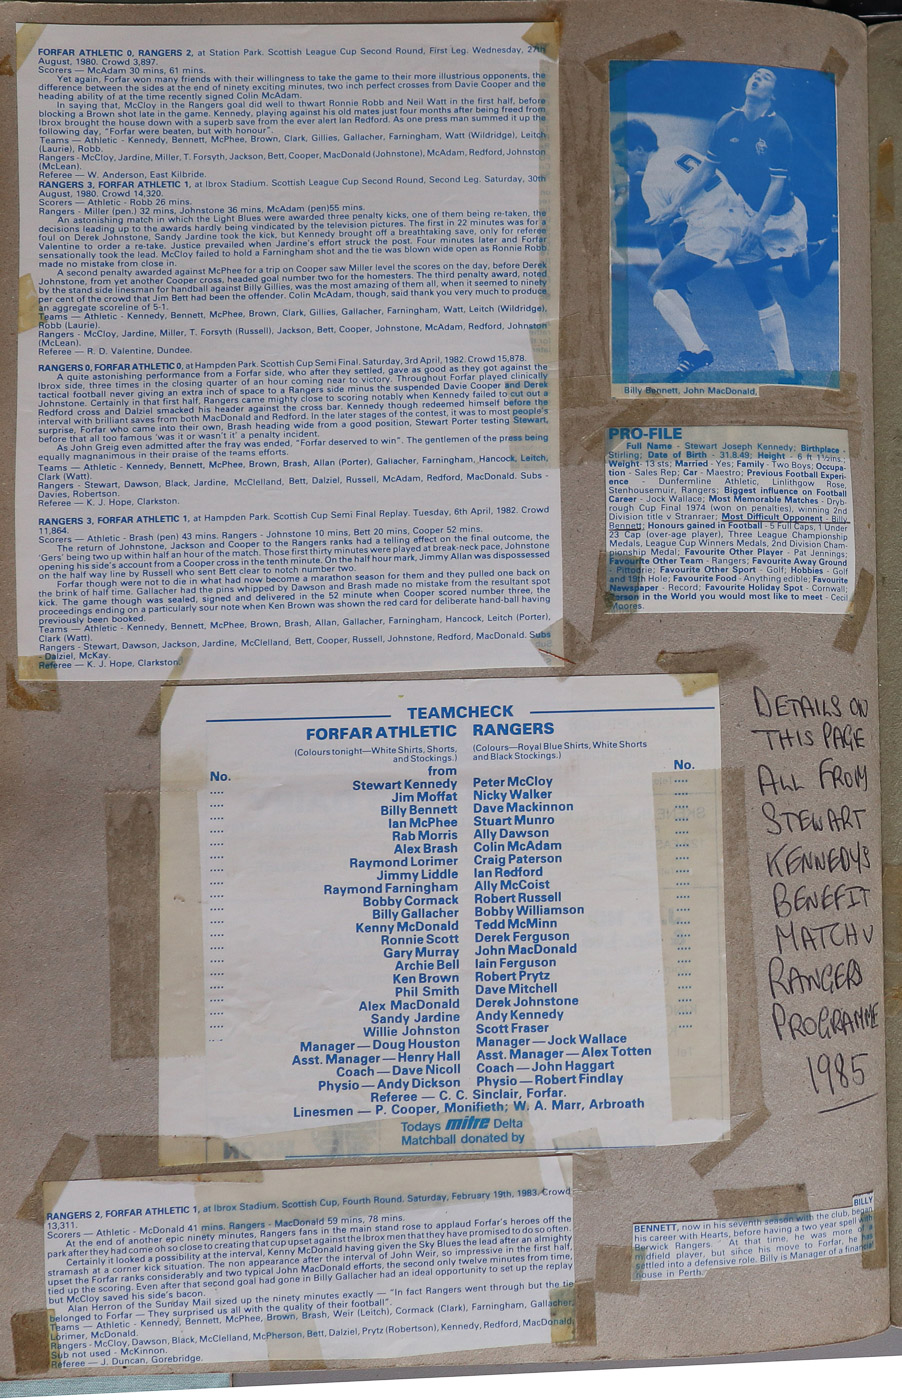 FORFAR ATHLETIC 0, RANGERS 2, at Station Park. Scottish League Cup Second Round, First Leg. Wednesday, 27th
August, 1980. Crowd 3,897.
Scorers — McAdam 30 mins, 61 mins.
Yet again, Forfar won many friends with their willingness to take the game to their more illustrious opponents, the
difference between the sides at the end of ninety exciting minutes, two inch perfect crosses from Davie Cooper and the
heading ability of at the time recently signed Colin McAdam.
In saying that, McCloy in the Rangers goal did well to thwart Ronnie Robb and Neil Watt in the first half, before
blocking a Brown shot late in the game. Kennedy, playing against his old mates just four months after being freed from
Ibrox brought the house down with a superb save from the ever alert Ian Redford. As one press man summed it up the
following day, "Forfar were beaten, but with honour".
Teams — Athletic - Kennedy, Bennett, McPhee, Brown, Clark, Gillies, Gallacher, Farningham, Watt (Wildridge), Leitch
(Laurie), Robb.
Rangers - McCloy, Jardine, Miller, T. Forsyth, Jackson, Bett, Cooper, MacDonald (Johnstone), McAdam, Redford, Johnston
(McLean).
Referee — W. Anderson, East Kilbride.
RANGERS 3, FORFAR ATHLETIC 1, at Ibrox Stadium. Scottish League Cup Second Round, Second Leg. Saturday, 30th
August, 1980. Crowd 14,320.
Scorers — Athletic - Robb 26 mins.
Rangers - Miller (pen.) 32 mins, Johnstone 36 mins, McAdam (pen)55 mins.
An astonishing match in which the Light Blues were awarded three penalty kicks, one of them being re-taken, the
decisions leading up to the awards hardly being indicated by the television pictures. The first in 22 minutes was for a
foul on Derek Johnstone, Sandy Jardine took the kick, but Kennedy brought off a breathtaking save, only for referee
Valentine to order a re-take. Justice prevailed when Jardine's effort struck the post. Four minutes later and Forfar
sensationally took the lead. McCloy failed to hold a Farningham shot and the tie was blown wide open as Ronnie Robb
made no mistake from close in.
A second penalty awarded against McPhee for a trip on Cooper saw Miller level the scores on the day, before Derek
Johnstone, from yet another Cooper cross, headed goal number two for the homesters. The third penalty award, noted
by the stand side linesman for handball against Billy Gillies, was the most amazing of them all, when it seemed to ninety
per cent of the crowd that Jim Bett had been the offender. Colin McAdam, though, said thank you very much to produce
an aggregate scoreline of 5-1.
Teams — Athletic - Kennedy, Bennett, McPhee, Brown, Clark, Gillies, Gallacher, Farningham, Watt, Leitch (Wildridge),
Robb (Laurie).
Rangers - McCloy, Jardine, Miller, T. Forsyth (Russell), Jackson, Bett, Cooper, Johnstone, McAdam, Redford, Johnston
(McLean).
Referee — R. D. Valentine, Dundee.
RANGERS 0, FORFAR ATHLETIC 0, at Hampden Park. Scottish Cup Semi Final, Saturday, 3rd April, 1982. Crowd 15,878.
A quite astonishing performance from a Forfar side, who after they settled, gave as good as they got against the
Ibrox side, three times in the closing quarter of an hour coming near to victory. Throughout Forfar played clinically
tactical football never giving an extra inch of space to a Rangers side minus the suspended Davie Cooper and Derek
Johnstone. Certainly in that first half, Rangers came mighty close to scoring notably when Kennedy failed to cut out a
Redford cross and Dalziel smacked his header against the cross bar. Kennedy though redeemed himself before the
interval with brilliant saves from both MacDonald and Redford. In the later stages of the contest, it was to most people's
surprise, Forfar who came into their own, Brash heading wide from a good position, Stewart Porter testing Stewart,
before that all too famous 'was it or wasn't it' a penalty incident.
As John Greig even admitted after the fray was ended, "Forfar deserved to win". The gentlemen of the press being
equally magnanimous in their praise of the teams efforts.
Teams — Athletic - Kennedy, Bennett, McPhee, Brown, Brash, Allan (Porter), Gallacher, Farningham, Hancock, Leitch,
Clark (Watt).
Rangers - Stewart, Dawson, Black, Jardine, McClelland, Bett, Dalziel, Russell, McAdam, Redford, MacDonald. Subs -
Davies, Robertson.
Referee — K. J. Hope, Clarkston.
RANGERS 3, FORFAR ATHLETIC 1, at Hampden Park. Scottish Cup Semi Final Replay. Tuesday, 6th April, 1982. Crowd
11,864.
Scorers — Athletic - Brash (pen) 43 mins. Rangers - Johnstone 10 mins, Bett 20 mins, Cooper 52 mins.
The return of Johnstone, Jackson and Cooper to the Rangers ranks had a telling effect on the final outcome, the
'Gers' being two up within half an hour of the match. Those first thirty minutes were played at break-neck pace, Johnstone
opening his side's account from a Cooper cross in the tenth minute. On the half hour mark, Jimmy Allan was dispossessed
on the half way line by Russell who sent Bett clear to notch number two.
Forfar though were not to die in what had now become a marathon season for them and they pulled one back on
the brink of half time. Gallacher had the pins whipped by Dawson and Brash made no mistake from the resultant spot
kick. The game though was sealed, signed and delivered in the 52 minute when Cooper scored number three, the
proceedings ending on a particularly sour note when Ken Brown was shown the red card for deliberate hand-ball having
previously been booked.
Teams — Athletic - Kennedy, Bennett, McPhee, Brown, Brash, Allan, Gallacher, Farningham, Hancock, Leitch (Porter),
Clark (Watt).
Rangers - Stewart, Dawson, Jackson, Jardine, McClelland, Bett, Cooper, Russell, Johnstone, Redford, MacDonald. Subs
- Dalziel, McKay.
Referee — K. J. Hope, Clarkston.
Billy Bennett, John MacDonald,
PRO-FILE
Full Name - Stewart Joseph Kennedy; Birthplace -
Stirling; Date of Birth - 31.8.49; Height - 6 ft 1½ins.;
Weight- 13 sts; Married - Yes; Family - Two Boys; Occupa-
tion - Sales Rep; Car - Maestro; Previous Football Experi-
ence - Dunfermline Athletic, Linlithgow Rose,
Stenhousemuir, Rangers; Biggest influence on Football
Career - Jock Wallace; Most Memorable Matches - Dryb-
rough Cup Final 1974 (won on penalties), winning 2nd
Division title v Stranraer; Most Difficult Opponent - Billy
Bennett; Honours gained in Football - 5 Full Caps, 1 Under
23 Cap (over-age player), Three League Championship
Medals, League Cup Winners Medals, 2nd Division Cham-
pionship Medal; Favourite Other Player - Pat Jennings;
Favourite Other Team - Rangers; Favourite Away Ground
- Pittodrie; Favourite Other Sport - Golf; Hobbies - Golf
and 19th Hole; Favourite Food - Anything edible; Favourite
Newspaper - Record; Favourite Holiday Spot - Cornwall;
Person in the World you would most like to meet - Cecil
Moores.
TEAMCHECK
FORFAR ATHLETIC RANGERS
(Colours tonight—White Shirts, Shorts, and Stockings.) (Colours—Royal Blue Shirts, White Shorts and Black Stockings.)
No. from No.
.... Stewart Kennedy Peter McCloy ....
.... Jim Moffat Nicky Walker ....
.... Billy Bennett Dave Mackinnon ....
.... Ian McPhee Stuart Munro ....
.... Rab Morris Ally Dawson ....
.... Alex Brash Colin McAdam ....
.... Raymond Lorimer Craig Paterson ....
.... Jimmy Liddle Ian Redford ....
.... Raymond Farningham Ally McCoist ....
.... Bobby Cormack Robert Russell ....
.... Billy Gallacher Bobby Williamson ....
.... Kenny McDonald Tedd McMinn ....
.... Ronnie Scott Derek Ferguson ....
.... Gary Murray John MacDonald ....
.... Archie Bell Iain Ferguson ....
.... Ken Brown Robert Prytz ....
.... Phil Smith Dave Mitchell ....
.... Alex MacDonald Derek Johnstone ....
.... Sandy Jardine Andy Kennedy ....
.... Willie Johnston Scott Fraser ....
Manager — Doug Houston Manager — Jock Wallace
Asst. Manager — Henry Hall Asst. Manager — Alex Totten
Coach — Dave Nicoll Coach — John Haggart
Physio — Andy Dickson Physio — Robert Findlay
Referee — C. C. Sinclair, Forfar.
Linesmen — P. Cooper, Monifieth; W. A. Marr, Arbroath
Todays mitre Delta
Matchball donated by
DETAILS ON
THIS PAGE
ALL FROM
STEWART
KENNEDY'S
BENEFIT
MATCH V
RANGERS
PROGRAMME
1985
RANGERS 2, FORFAR ATHLETIC 1, at Ibrox Stadium. Scottish Cup, Fourth Round, Saturday, February 19th, 1983. Crowd
13,311.
Scorers — Athletic - McDonald 41 mins. Rangers - MacDonald 59 mins, 78 mins.
At the end of another epic ninety minutes, Rangers fans in the main stand rose to applaud Forfar's heroes off the
park after they had come oh so close to creating that cup upset against the Ibrox men that they have promised to do so often.
Certainly it looked a possibility at the interval, Kenny McDonald having given the Sky Blues the lead after an almighty
stramash at a corner kick situation. The non appearance after the interval of John Weir, so impressive in the first half,
upset the Forfar ranks considerably and two typical John MacDonald efforts, the second only twelve minutes from time,
tied up the scoring. Even after that second goal had gone in Billy Gallacher had an ideal opportunity to set up the replay
but McCloy saved his side's bacon.
Alan Herron of the Sunday Mail sized up the ninety minutes exactly — "In fact Rangers went through but the tie
belonged to Forfar — They surprised us all with the quality of their football".
Teams — Athletic - Kennedy, Bennett, McPhee, Brown, Brash, Weir (Leitch), Cormack (Clark), Farningham, Gallacher,
Lorimer, McDonald.
Rangers - McCloy, Dawson, Black, McClelland, McPherson, Bett, Dalziel, Prytz (Robertson), Kennedy, Redford, MacDonald,
Sub not used - McKinnon.
Referee — J. Duncan, Gorebridge.
BILLY
BENNETT, now in his seventh season with the club, began
his career with Hearts, before having a two year spell with
Berwick Rangers. At that time, he was more of a
midfield player, but since his move to Forfar, he has
settled into a defensive role. Billy is Manager of a financial
house in Perth.